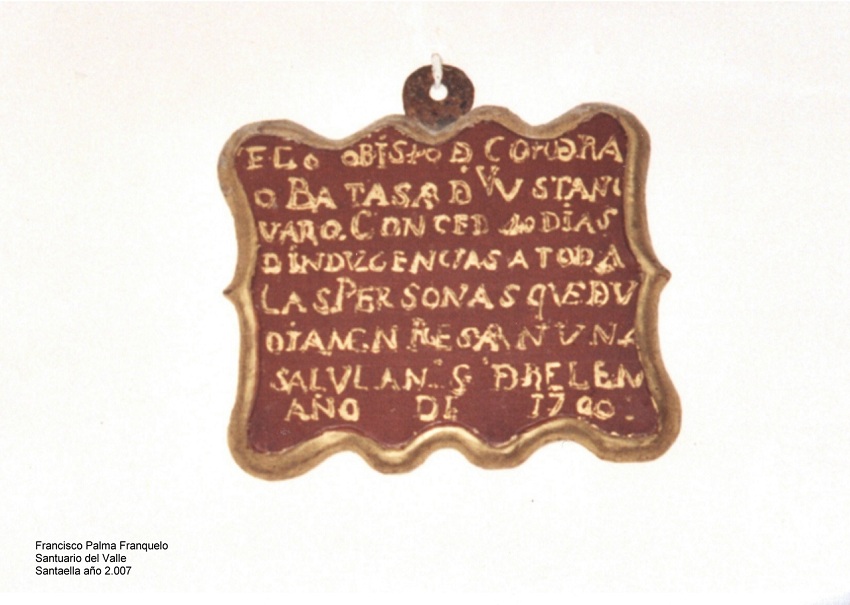 EL Yo OBISPO D CORDBA
O BATASAR D YVUSTANI
VARO. CONCED 40 DIAS
D INDULGENCIAS A TODA
LAS PERSONAS QUE DV
OIAMEN RESAN UNA
SALV LA N. S DE BELEN
AÑO DE
Francisco Palma Franquelo
Santuario del Valle
Santaella año 2.007